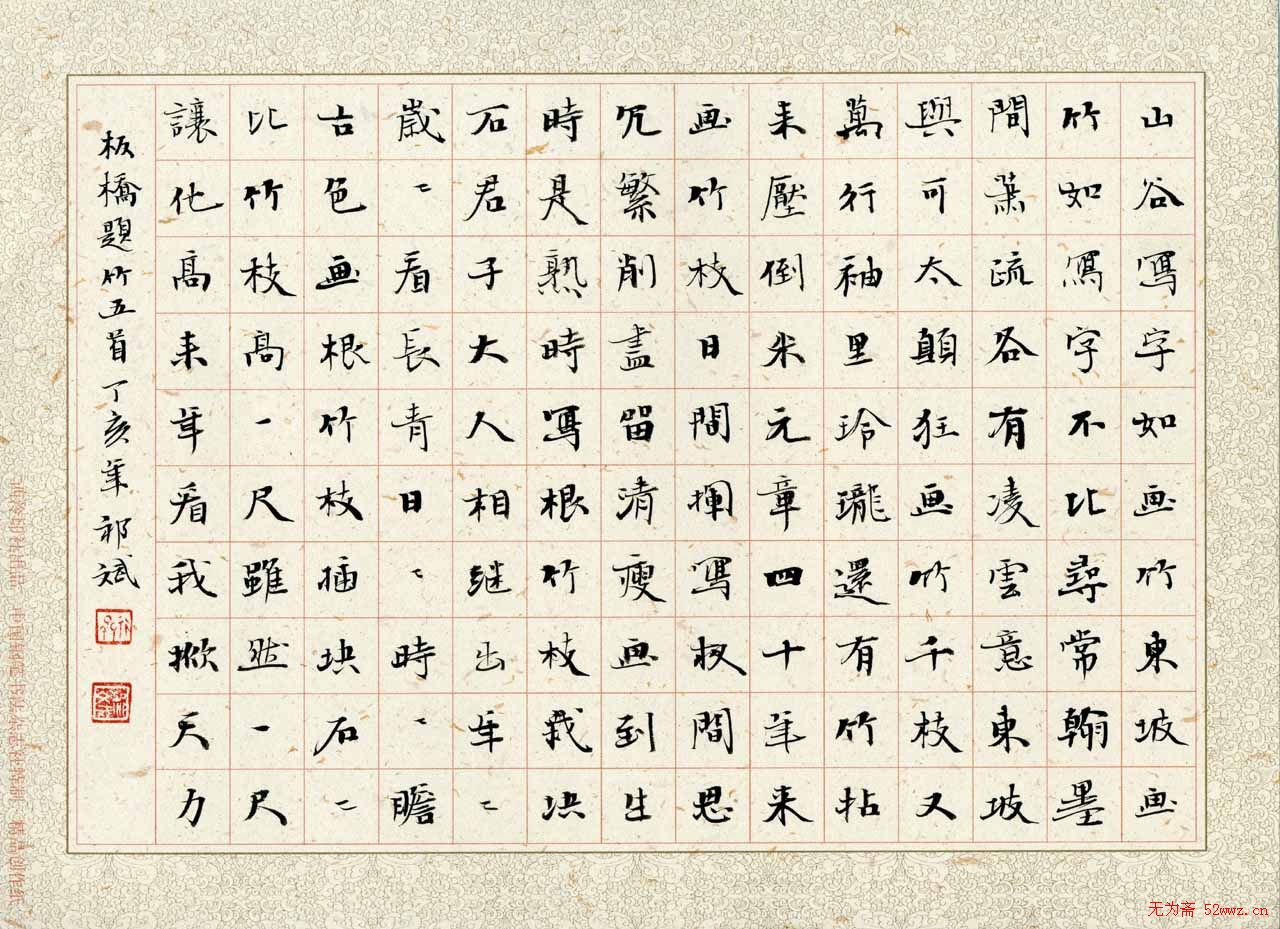 山谷寫字如画竹東坡画
竹如寫字不比尋常翰墨
間蕭疏各有凌雲意東坡
與可太顛狂画竹千枝又
萬行袖里玲瓏還有竹拈
来壓倒米元章四十年来
画竹枝日間揮寫夜間思
冗繁削盡留清瘦画到生
時是熟時寫根竹枝栽块
石君子大人相継出年〻
歲〻看長青日〻時〻瞻
古色画根竹枝插块石〻
比竹枝高一尺雖然一尺
讓他高来年看我掀天力
板橋題竹五首丁亥年祁斌
无为斋 52wwz.cn